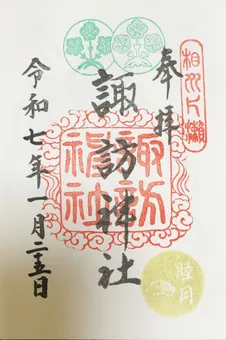 相州片瀬
奉拝
諏訪神社
諏訪神社
令和七年一月二十五日
睦月